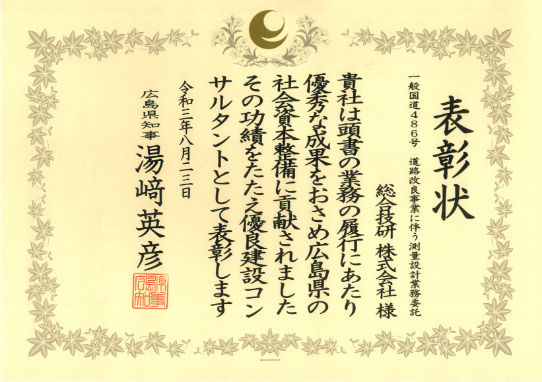 表彰状
一般国道486号 道路改良事業に伴う測量設計業務委託
総合技研 株式会社 様
貴社は頭書の業務の履行にあたり
優秀な成果をおさめ広島県の
社会資本整備に貢献されました
その功績をたたえ優良建設コン
サルタントとして表彰します
令和三年八月二三日
広島県知事 湯﨑英彦